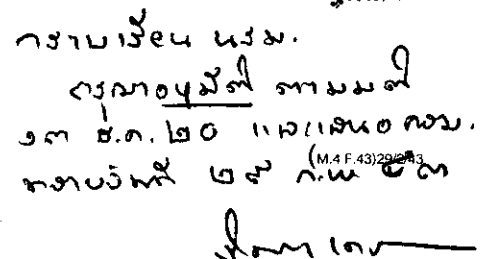 กราบเรียน นรม.
กรุณาอนุมัติ ตามมติ
๑๓ ธ.ค. ๒๐ และเสนอ ครม.
ทราบวันที่ ๒๙ ก.พ. ๔๓
(M.4 F.43)29/2/43